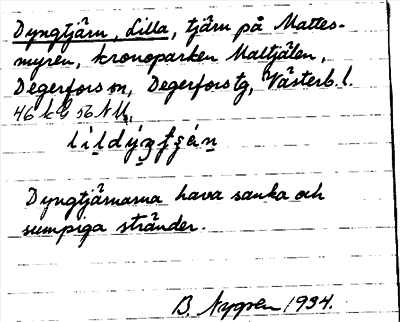 Dyngtjärn, Lilla, tjärn på Mattes-
myren, kronoparken Maltjälen,
Degerfors sn, Degerfors tg, Västerb. l.
46 k G 56 N U,
Dyngtjärnarna hava sanka och
sumpiga stränder.
B. Nygren 1934.